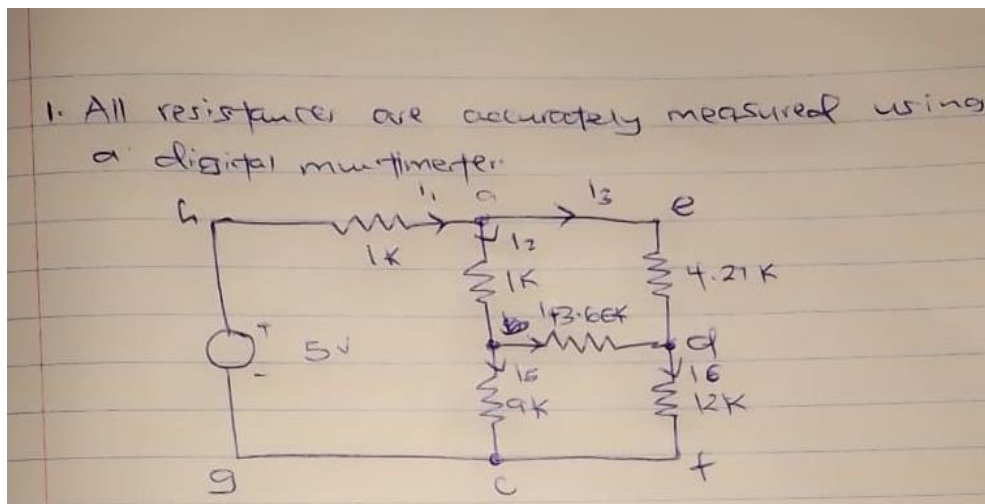 1. All resistances are accurately measured using
a digital multimeter.
h
I1
a
I3
e
1K
I2
1K
4.21K
b
3.6
d
+
5v
-
I5
9K
I6
12K
g
c
f